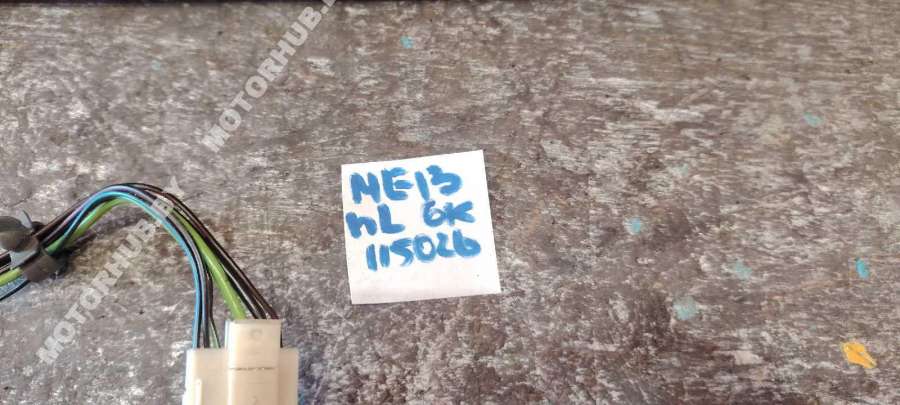 MOTORHUB.BY
MOTORHUB.BY
ME13
hL 6K
115026